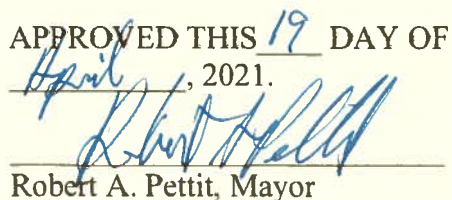 APPROVED THIS 19 DAY OF
April, 2021.
Robert A. Pettit
Robert A. Pettit, Mayor